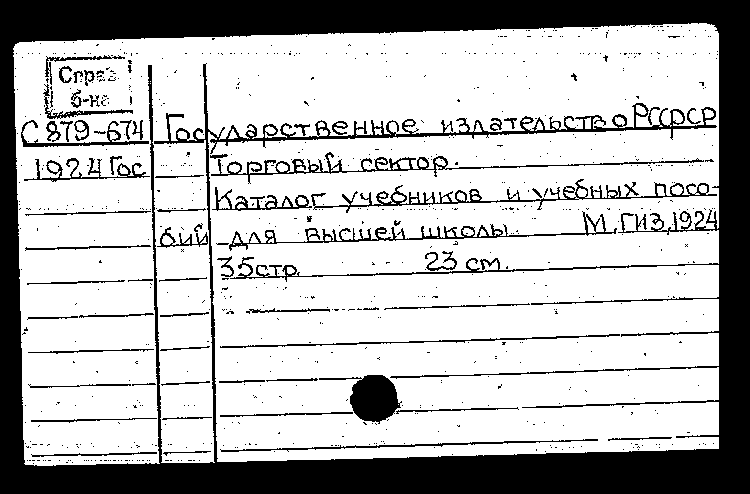 Справ
б-на
С 879-674 Государственное издательство РСФСР
1924 Гос Торговый сектор.
Каталог учебников и учебных посо-
бий для высшей школы М, ГИЗ, 1924
35стр. 23 см.